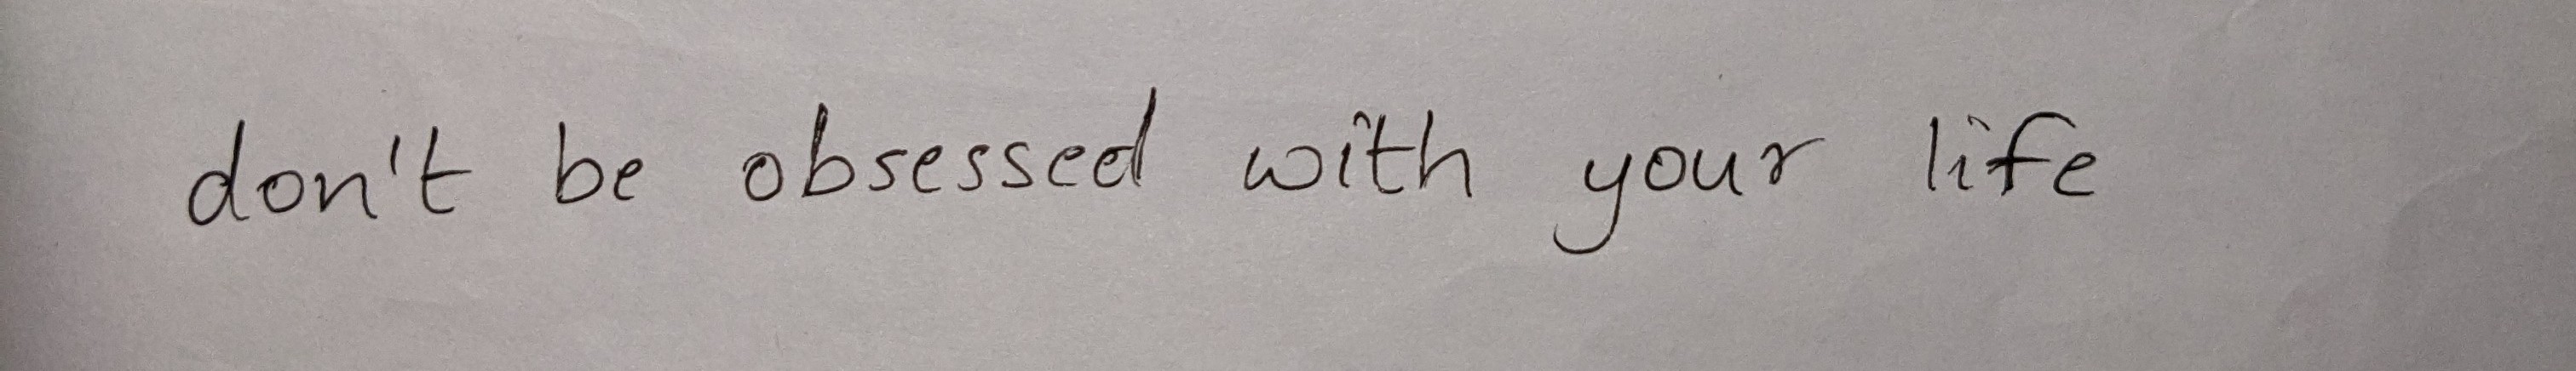 don't be obsessed with your life